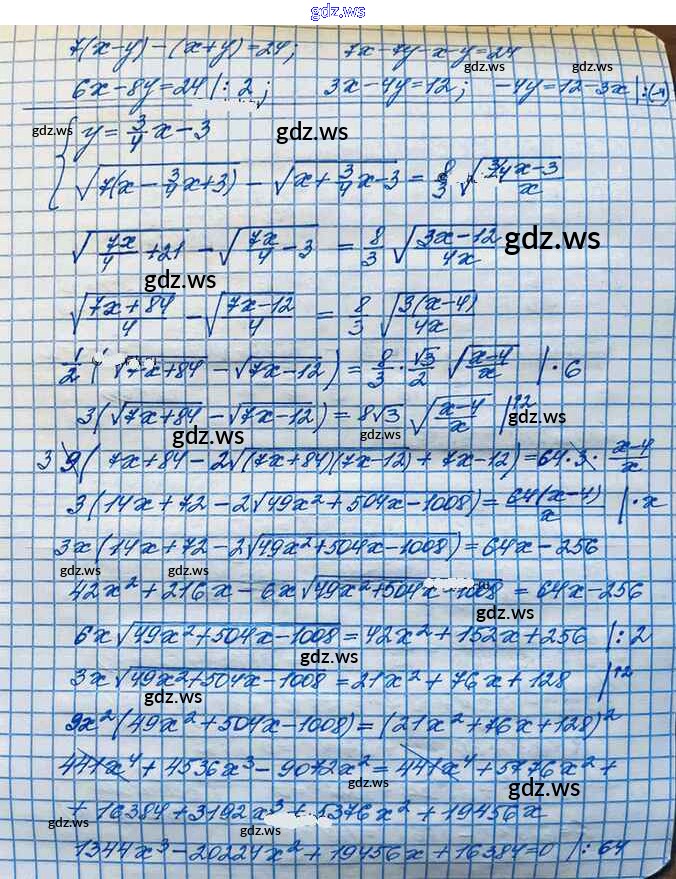 gdz.ws
7(x-y)-(x+y)=24; 7x-7y-x-y=24
gdz.ws gdz.ws
6x-8y=24 |:2; 3x-4y=12; -4y=12-3x |:(-4)
gdz.ws gdz.ws
{ y=3/4x-3
√(7(x-3/4x+3)) - √(x+3/4x-3) = 8/3 √((3/4x-3)/x)
√(7x/4+21) - √(7x/4-3) = 8/3 √((3x-12)/4x) gdz.ws
gdz.ws
√((7x+84)/4) - √((7x-12)/4) = 8/3 √(3(x-4)/4x)
1/2(√(7x+84) - √(7x-12)) = 8/3 · √3/2 √((x-4)/x) |·6
3(√(7x+84) - √(7x-12)) = 8√3 √((x-4)/x) |²
gdz.ws gdz.ws gdz.ws
3 9(7x+84-2√((7x+84)(7x-12))+7x-12)=64·3·(x-4)/x
3(14x+72-2√(49x²+504x-1008))=64(x-4)/x |·x
3x(14x+72-2√(49x²+504x-1008))=64x-256
gdz.ws gdz.ws
42x²+216x-6x√(49x²+504x-1008)=64x-256
gdz.ws
6x√(49x²+504x-1008)=42x²+152x+256 |:2
gdz.ws
3x√(49x²+504x-1008)=21x²+76x+128 |²
gdz.ws gdz.ws
9x²(49x²+504x-1008)=(21x²+76x+128)²
gdz.ws
441x⁴+4536x³-9072x²=441x⁴+5776x²+
gdz.ws
+16384+3192x³+5376x²+19456x
gdz.ws gdz.ws
1344x³-20224x²+19456x+16384=0 |:64